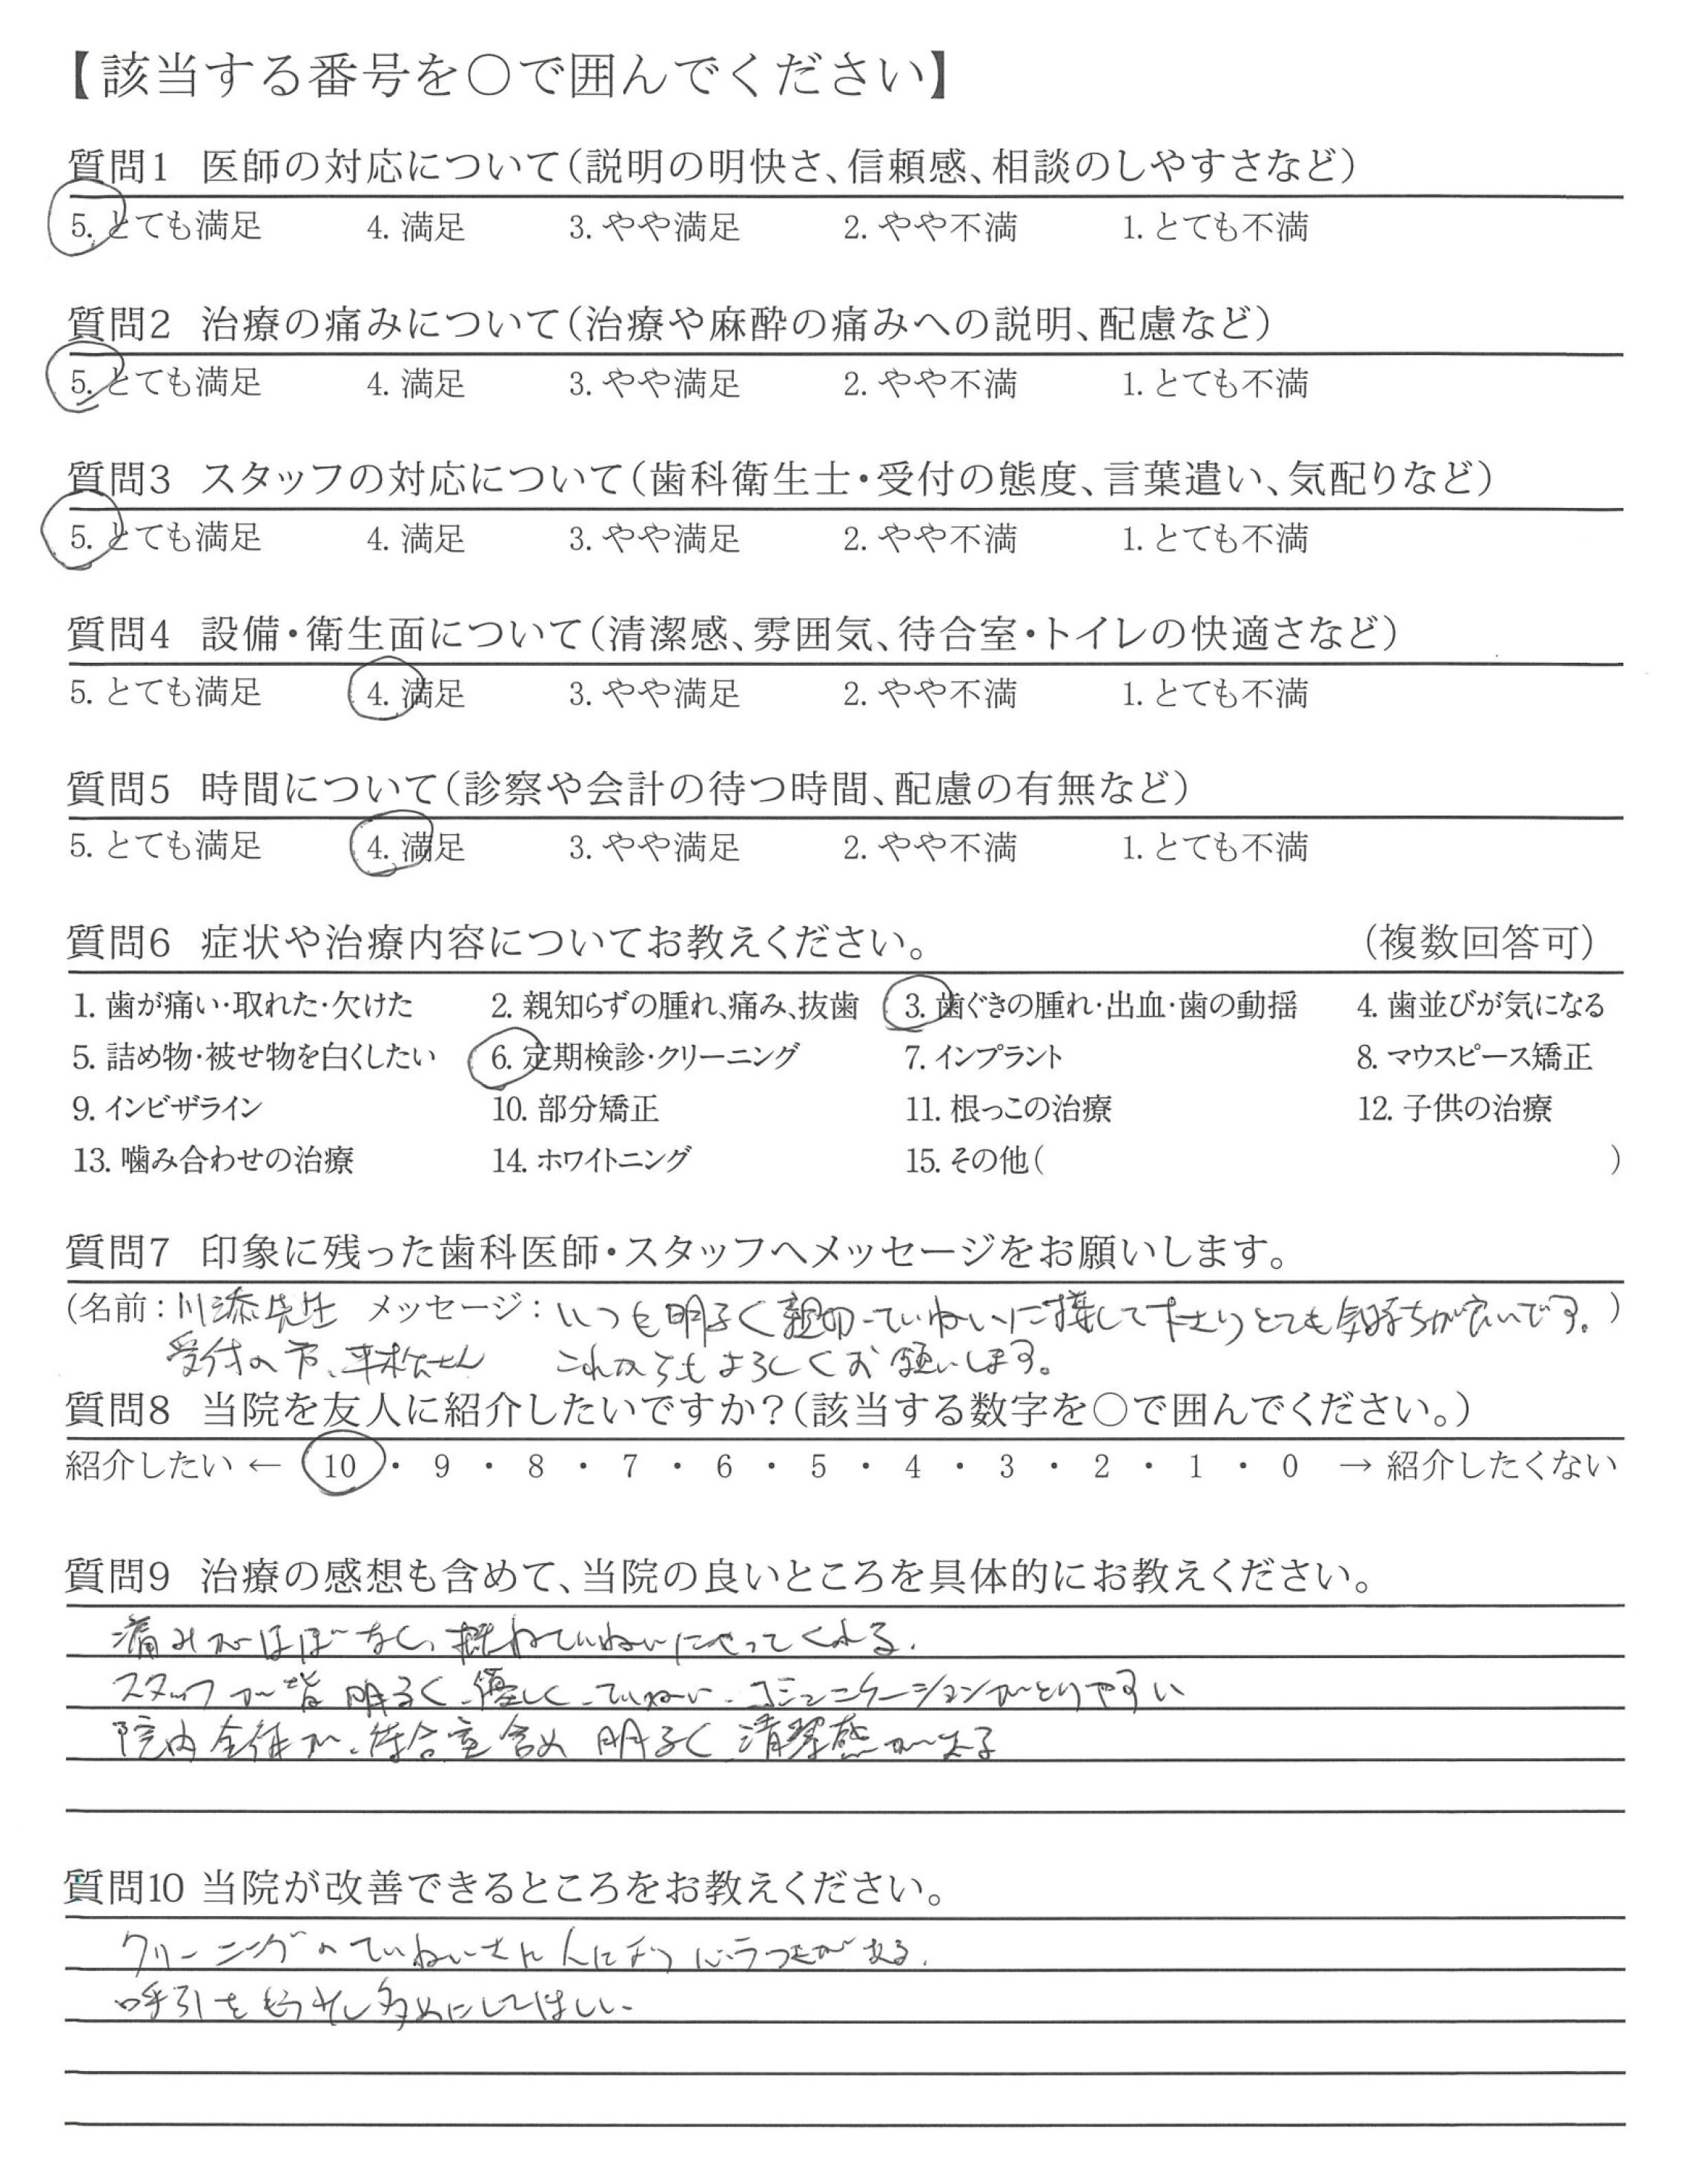 【該当する番号を○で囲んでください】
質問1 医師の対応について（説明の明快さ、信頼感、相談のしやすさなど）
5. とても満足 4. 満足 3. やや満足 2. やや不満 1. とても不満
質問2 治療の痛みについて（治療や麻酔の痛みへの説明、配慮など）
5. とても満足 4. 満足 3. やや満足 2. やや不満 1. とても不満
質問3 スタッフの対応について（歯科衛生士・受付の態度、言葉遣い、気配りなど）
5. とても満足 4. 満足 3. やや満足 2. やや不満 1. とても不満
質問4 設備・衛生面について（清潔感、雰囲気、待合室・トイレの快適さなど）
5. とても満足 4. 満足 3. やや満足 2. やや不満 1. とても不満
質問5 時間について（診察や会計の待つ時間、配慮の有無など）
5. とても満足 4. 満足 3. やや満足 2. やや不満 1. とても不満
質問6 症状や治療内容についてお教えください。 （複数回答可）
1. 歯が痛い・取れた・欠けた 2. 親知らずの腫れ、痛み、抜歯 3. 歯ぐきの腫れ・出血・歯の動揺 4. 歯並びが気になる
5. 詰め物・被せ物を白くしたい 6. 定期検診・クリーニング 7. インプラント 8. マウスピース矯正
9. インビザライン 10. 部分矯正 11. 根っこの治療 12. 子供の治療
13. 噛み合わせの治療 14. ホワイトニング 15. その他（ ）
質問7 印象に残った歯科医師・スタッフへメッセージをお願いします。
（名前：川添先生 メッセージ：いつも明るく親切ていねいに接して下さりとても気持ちが良いです。）
受付の方、 これからもよろしくお願いします。
質問8 当院を友人に紹介したいですか？（該当する数字を○で囲んでください。）
紹介したい ← 10 ・ 9 ・ 8 ・ 7 ・ 6 ・ 5 ・ 4 ・ 3 ・ 2 ・ 1 ・ 0 → 紹介したくない
質問9 治療の感想も含めて、当院の良いところを具体的にお教えください。
痛みがほぼなく、概ねていねいにやってくれる。
スタッフが皆明るく、優しく、ていねい、コミュニケーションがとりやすい
院内全体が、待合室含め明るく清潔感がある
質問10 当院が改善できるところをお教えください。
クリーニングのていねいさに人によりバラつきがある。
吸引をもう少し多めにしてほしい。